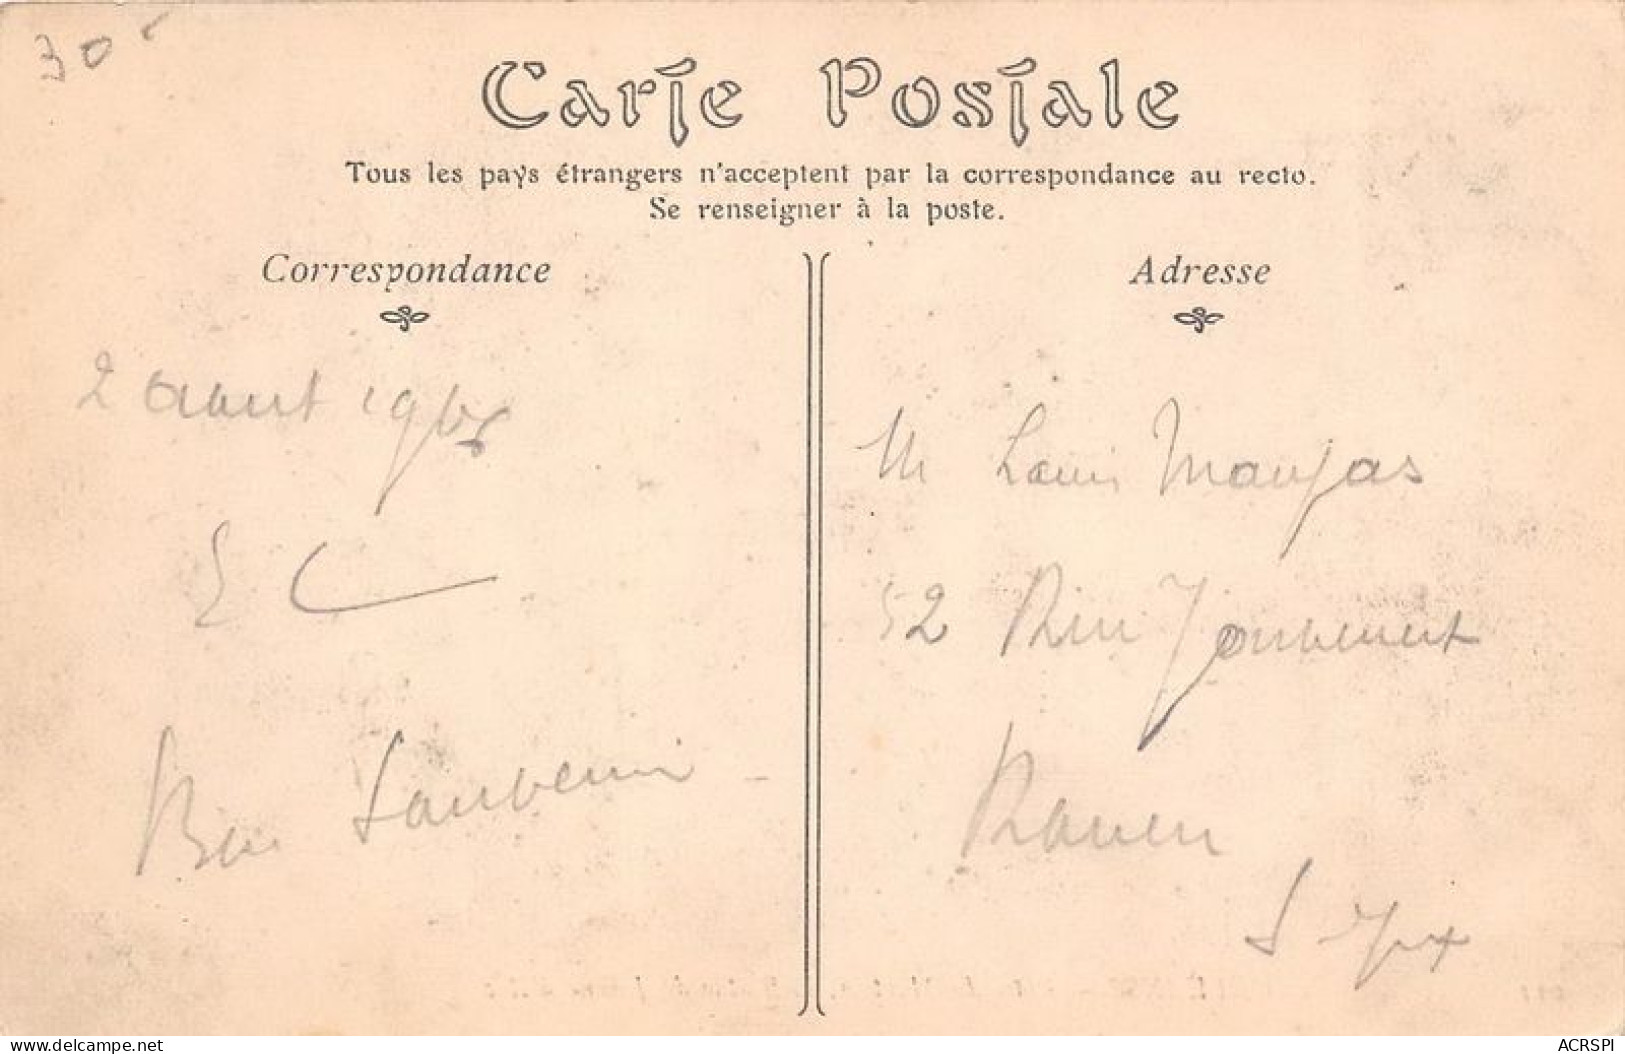 30
Carte Postale
Tous les pays étrangers n'acceptent par la correspondance au recto.
Se renseigner à la poste.
Correspondance
2 Aout 190
E C
Bon Souvenir
Adresse
M Louis Maujas
52 Rue Jouvenet
Rouen
S Infre
delcampe.net
ACRSPI